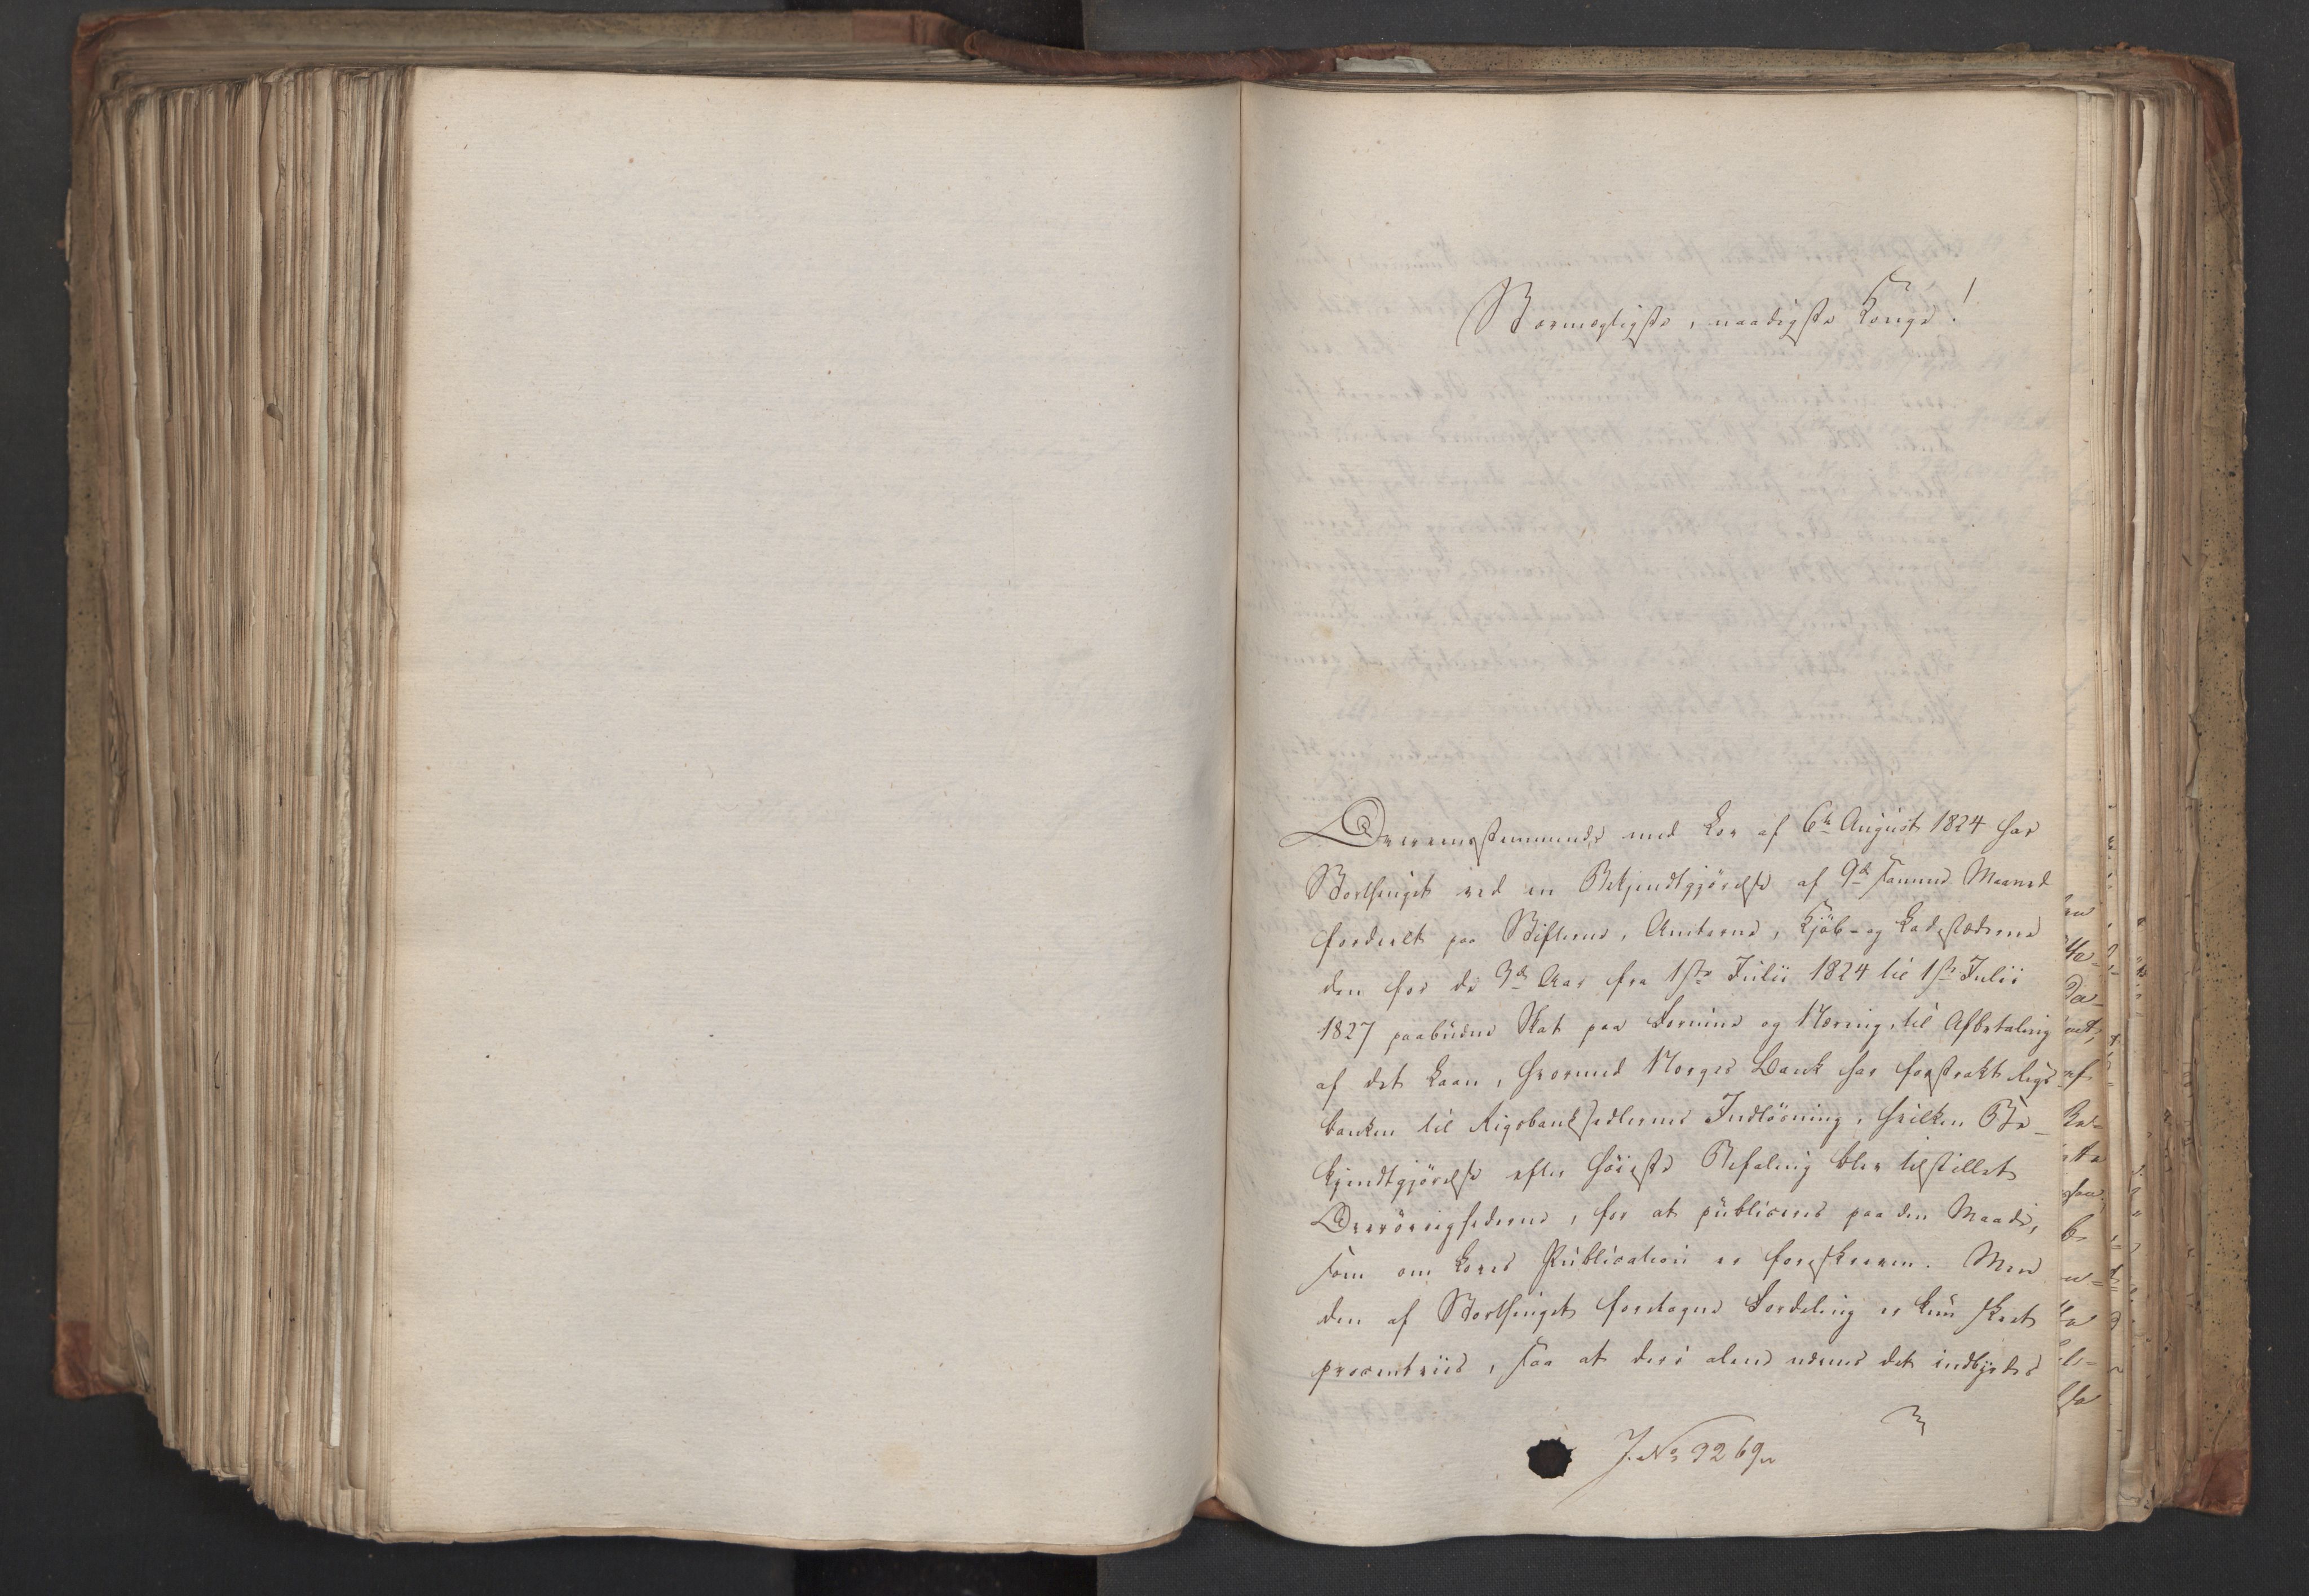 Stormægtigste, naadigste Konge!
Overeensstemmende med Lov af 6te August 1824 har
Storthinget ved en Bekjendtgjörelse af 9de samme Maaned
fordeelt paa Stifterne, Amterne, Kjöb- og Ladestæderne
den for de 3de Aar fra 1ste Julii 1824 til 1ste Julii
1827 paabudne Skat paa Formue og Næring, til Afbetaling
af det Laan, hvormed Norges Bank har forstrakt Rigs
banken til Rigsbanksedlernes Indlösning, hvilken Be-
kjendtgjörelse efter höieste Befaling blev tilstillet
Overövrighederne, for at publiceres paa den Maade,
som om Loves Publication er foreskreven. Men
den af Storthinget foretagne Fordeling er kun skeet
procentviis, saa at deri alene nævnes det indbyrdes
J. No 3269